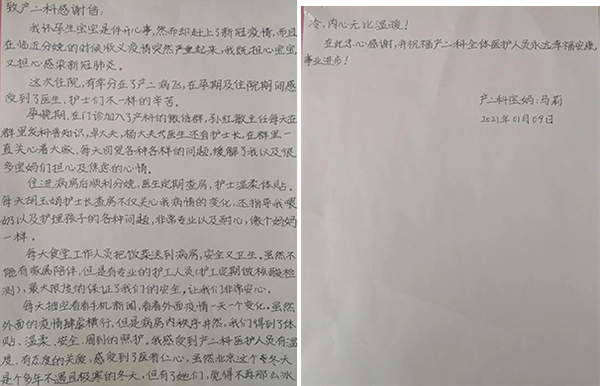 致产二科感谢信：
我怀孕生宝宝是件开心事，然而却赶上了新冠疫情，而且
在临近分娩的时候顺义疫情突然严重起来，我既担心宝宝
又担心感染新冠肺炎。
这次住院，有幸分在了产二病区，在孕期及住院期间感
受到了医生，护士们不一样的辛苦。
孕晚期，在门诊加入了产科的微信群，孙红敬主任每天在
群里发科普知识，卓大夫，杨大夫等医生还有护士长，在群里一
直关心着大家，每天回复各种各样的问题，缓解了我以及很
多宝妈们担心及焦虑的心情。
住进病房后顺利分娩，医生定期查房，护士温柔体贴，
每天胡玉娟护士长查房不仅关心我病情的变化，还指导我喂
奶以及护理孩子的各种问题，非常专业以及耐心，像个妈妈
一样。
每天食堂工作人员把饭菜送到病房，安全又卫生。虽然不
能有家属陪伴，但是有专业的护工人员（护工定期做核酸检
测），最大限度的保证了我们的安全，让我们非常安心。
每天抽空看看手机新闻，看着外面疫情一天一个变化，虽然
外面的疫情肆虐横行，但是病房内秩序井然，我们得到了体
贴、温柔、安全、周到的照护。我感受到产二科医护人员有温
度、有态度的关爱，感受到了医者仁心，虽然北京这个冬天
是个多年不遇且极寒的冬天，但有了她们，觉得不再那么冰
冷，内心无比温暖！
在此衷心感谢，并祝福产二科全体医护人员永远幸福安康，
事业进步！
产二科宝妈：马莉
2021年01月09日